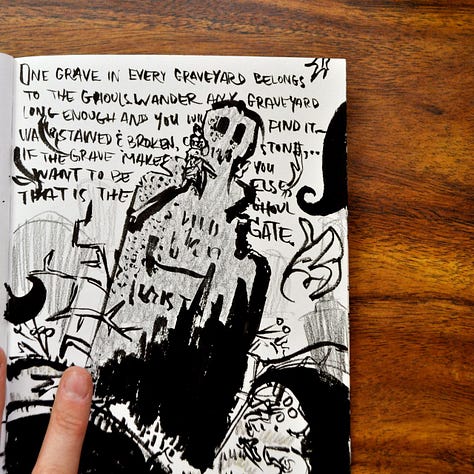 ONE GRAVE IN EVERY GRAVEYARD BELONGS
TO THE GHOULS. WANDER ANY GRAVEYARD
LONG ENOUGH AND YOU WILL FIND IT—
STAINED & BROKEN, STONE,..
IF THE GRAVE MAKES YOU
WANT TO BE ELSE
THAT IS THE GHOUL
GATE.